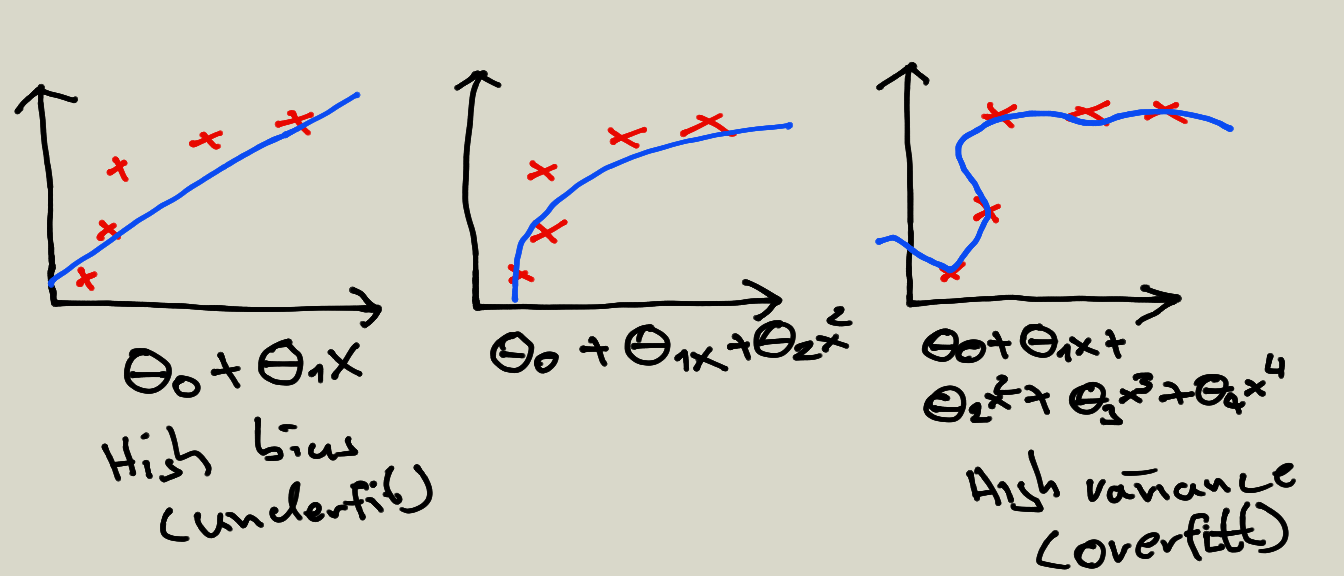 θ₀ + θ₁x
High bias
(underfit)
θ₀ + θ₁x + θ₂x²
θ₀ + θ₁x +
θ₂x² + θ₃x³ + θ₄x⁴
High variance
(overfitt)